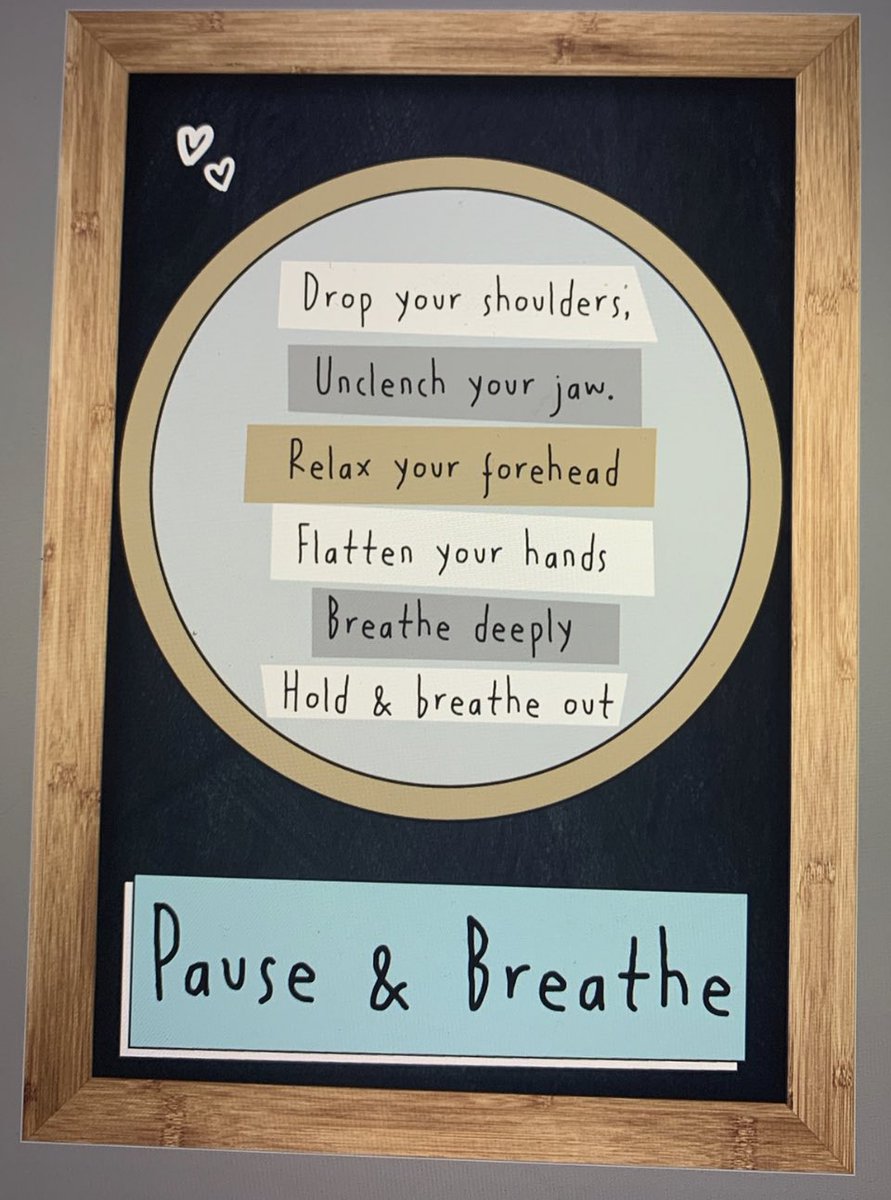 Drop your shoulders,
Unclench your jaw.
Relax your forehead
Flatten your hands
Breathe deeply
Hold & breathe out
Pause & Breathe